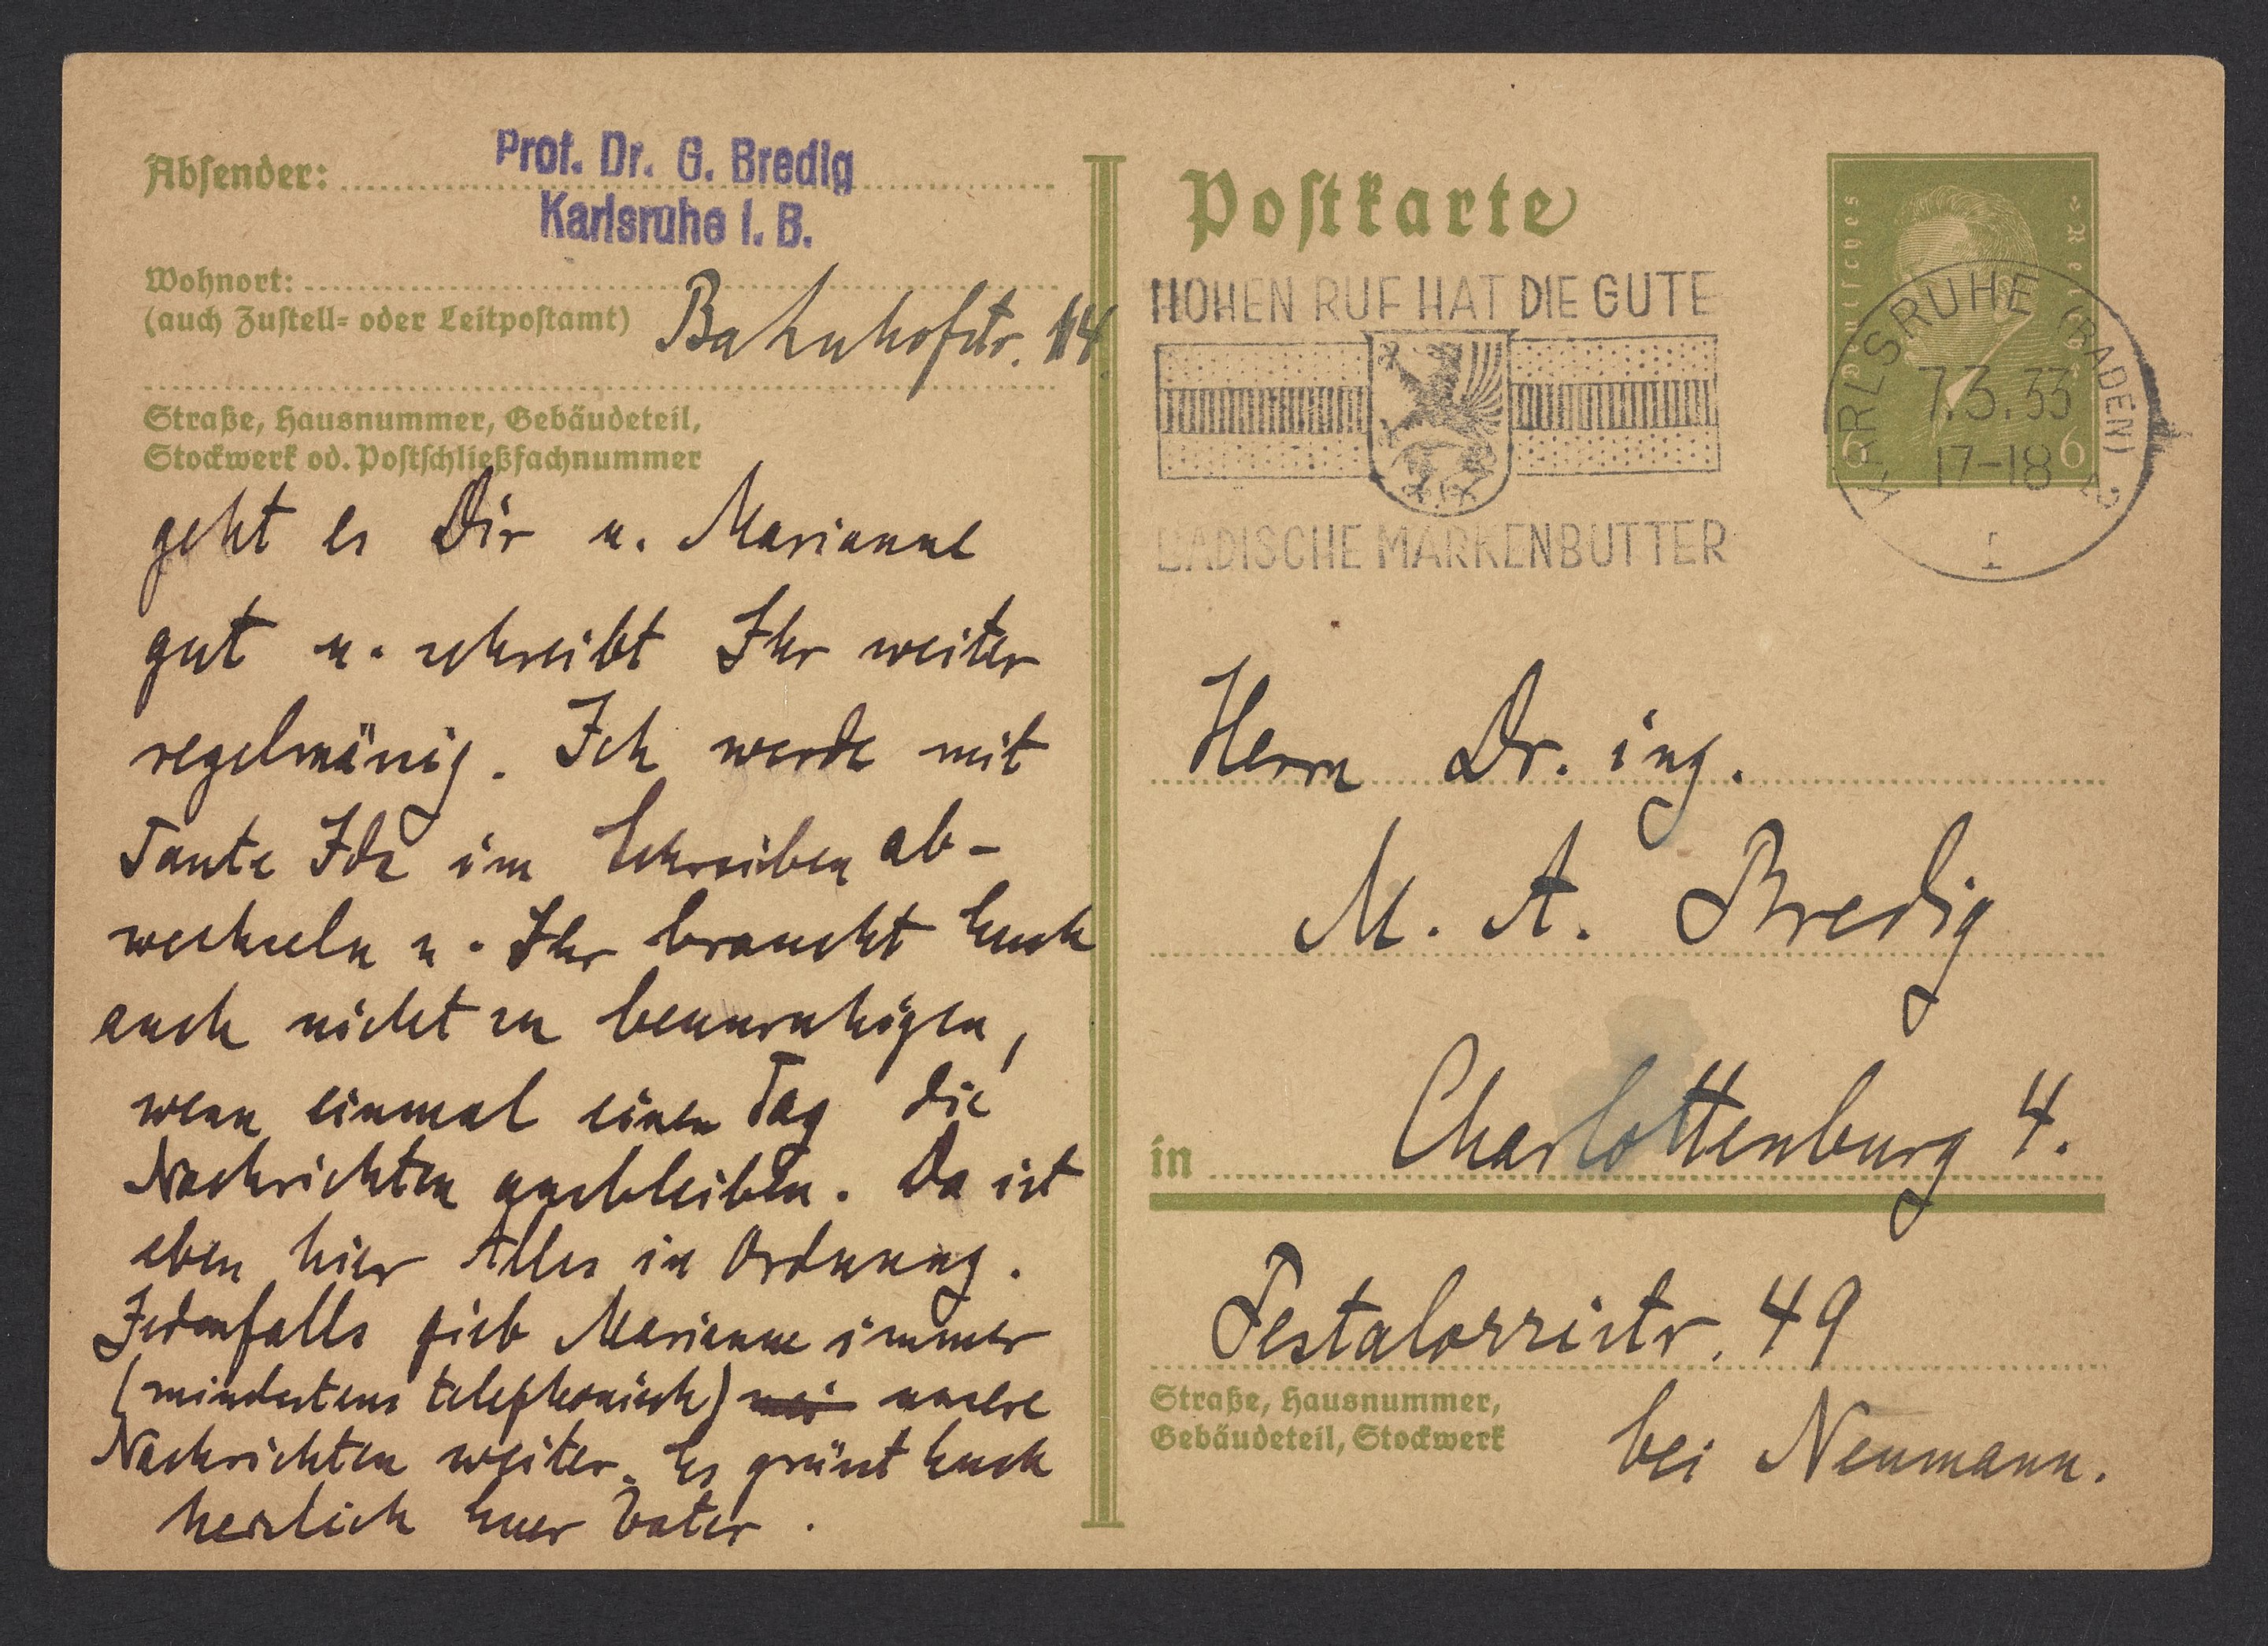 Absender:
Prof. Dr. G. Bredig
Karlsruhe i. B.
Wohnort:
(auch Zustell- oder Leitpostamt)
Bahnhofstr. 14.
Straße, Hausnummer, Gebäudeteil,
Stockwerk od. Postschließfachnummer
geht es Dir u. Marianne
gut u. schreibt Ihr weiter
regelmässig. Ich werde mit
Tante Ida im Schreiben ab-
wechseln u. Ihr braucht Euch
auch nicht zu beunruhigen,
wenn einmal einen Tag die
Nachrichten ausbleiben. Da ist
eben hier Alles in Ordnung.
Jedenfalls gieb Marianne immer
(mindestens telephonisch) unsere
Nachrichten weiter. Es grüsst Euch
herzlich Euer Vater.
Postkarte
Deutsches Reich
6 6
HOHEN RUF HAT DIE GUTE
BADISCHE MARKENBUTTER
KARLSRUHE (BADEN) 2
7.3.33
17-18
I
Herrn Dr. ing.
M. A. Bredig
in Charlottenburg 4.
Pestalozzistr. 49
Straße, Hausnummer,
Gebäudeteil, Stockwerk
bei Neumann.